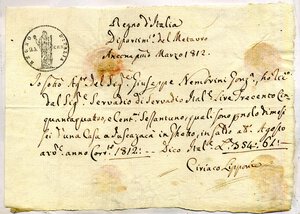 Regno d'Italia
Dipartim.º del Metauro
Ancona primo Marzo 1812.
Io sono Ag. del Sig. Giuseppe Nembrini Gonz.
del Sig. Servadio di Servadio Ital. Lire Trecento Cin
quantaquatro, e Cent. Sessantuno, quali sono p nolo di mesi
sei d'una Casa a in Ghetto, in saldo Agosto
anno Corr. 1812:— Dico Ital. L. 354:61:—
Ciriaco